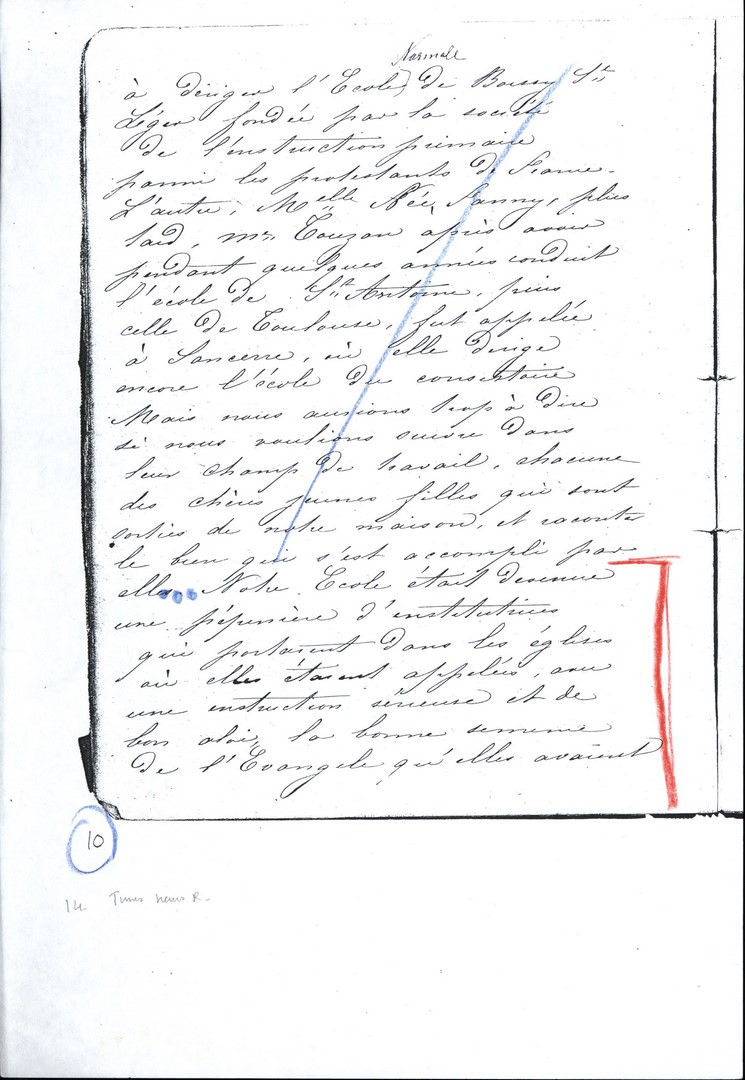 Normale
à diriger l'Ecole) de Boissy St
Léger fondée par la société
de l'instruction primaire
parmi les protestants de France.
L'autre, Melle Née, Fanny, plus
tard, mme Touzau après avoir
pendant quelques années conduit
l'école de St Antoine, puis
celle de Toulouse, fut appelée
à Sancerre, où elle dirige
encore l'école du consistoire
Mais nous aurions trop à dire
si nous voulions suivre dans
leur champ de travail, chacune
des chères jeunes filles qui sont
sorties de notre maison, et raconter
le bien qui s'est accompli par
elles... Notre Ecole était devenue
une pépinière d'institutrices
qui portaient dans les églises
où elles étaient appelées, avec
une instruction sérieuse et de
bon aloi, la bonne semence
de l'Evangile qu'elles avaient
10
14 Times News R.